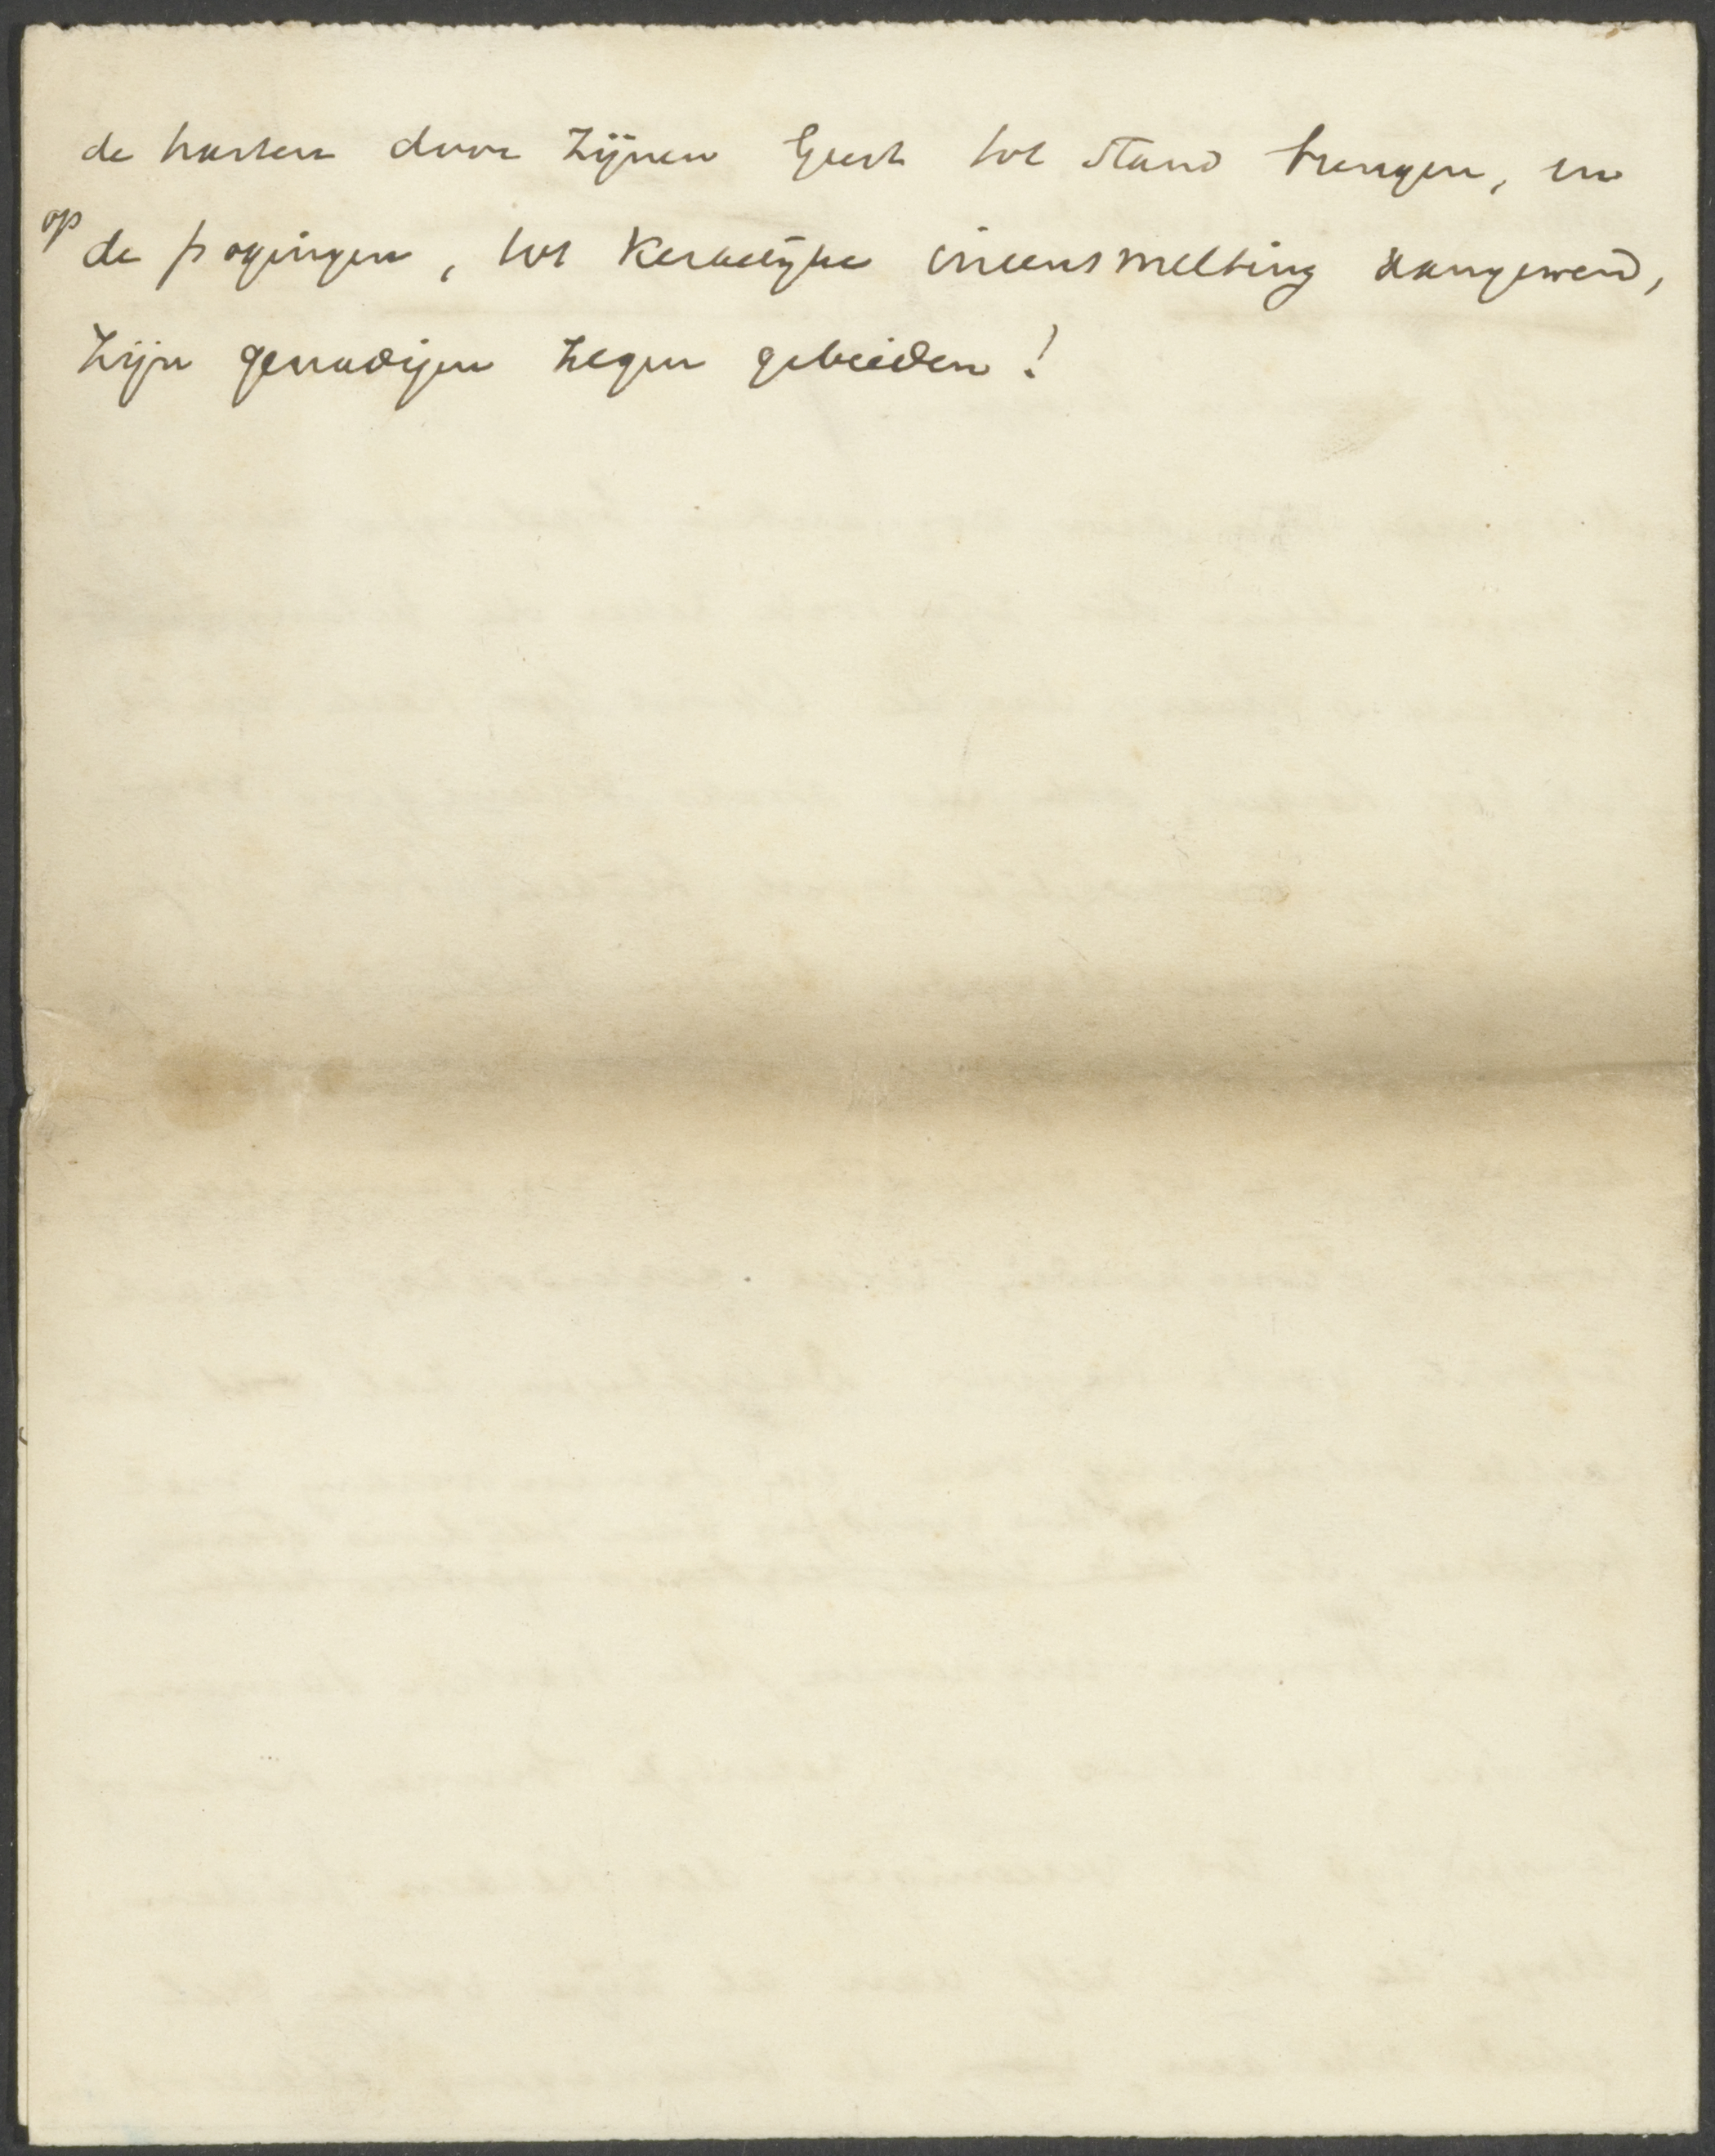 de harten door Zijnen Geest tot stand brengen, en
op de pogingen, tot kerkelijke ineensmelting aangewend,
Zijn genadigen zegen gebieden!